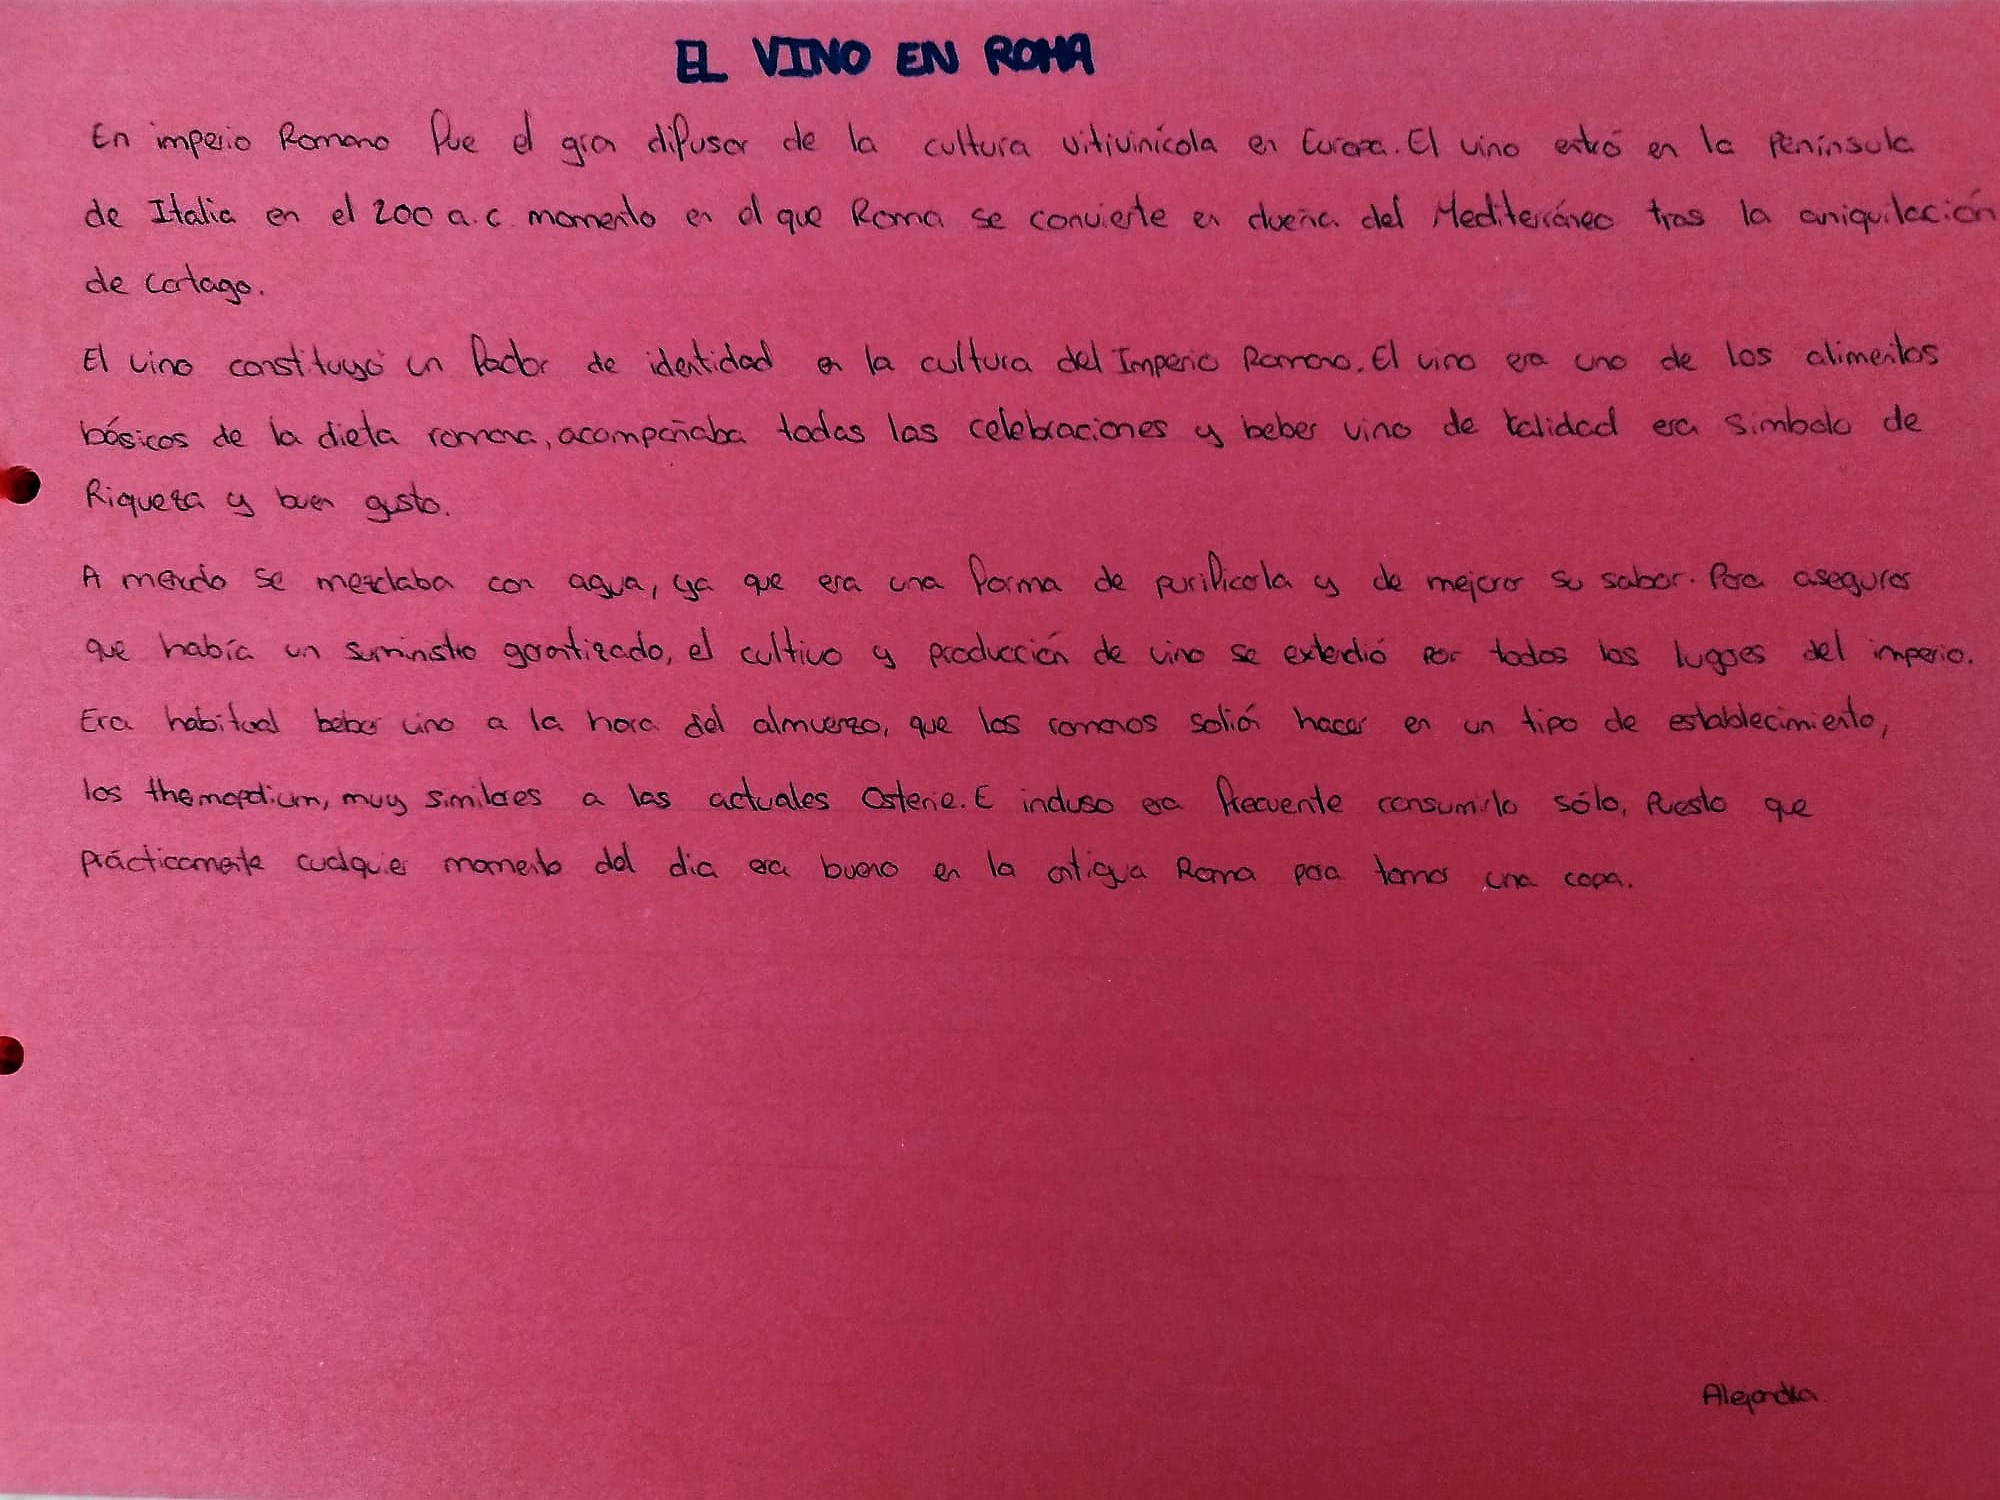 EL VINO EN ROMA
En imperio Romano fue el gran difusor de la cultura vitivinícola en Europa. El vino entró en la Península
de Italia en el 200 a.c. momento en el que Roma se convierte en dueña del Mediterráneo tras la aniquilación
de Cartago.
El vino constituyó un factor de identidad en la cultura del Imperio Romano. El vino era uno de los alimentos
básicos de la dieta romana, acompañaba todas las celebraciones y beber vino de calidad era símbolo de
Riqueza y buen gusto.
A menudo se mezclaba con agua, ya que era una forma de purificarla y de mejorar su sabor. Para asegurar
que había un suministro garantizado, el cultivo y producción de vino se extendió por todos los lugares del imperio.
Era habitual beber vino a la hora del almuerzo, que los romanos solían hacer en un tipo de establecimiento,
los themopolium, muy similares a las actuales Osterie. E incluso era frecuente consumirlo sólo, Puesto que
prácticamente cualquier momento del dia era bueno en la antigua Roma para tomar una copa.
Alejandra